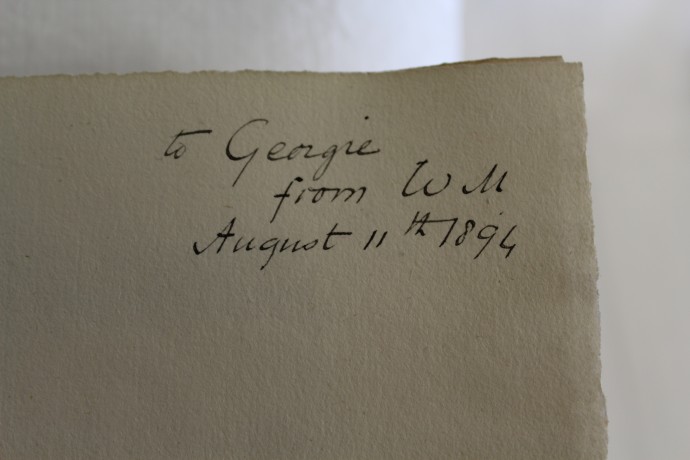 to Georgie
from W M
August 11th 1894